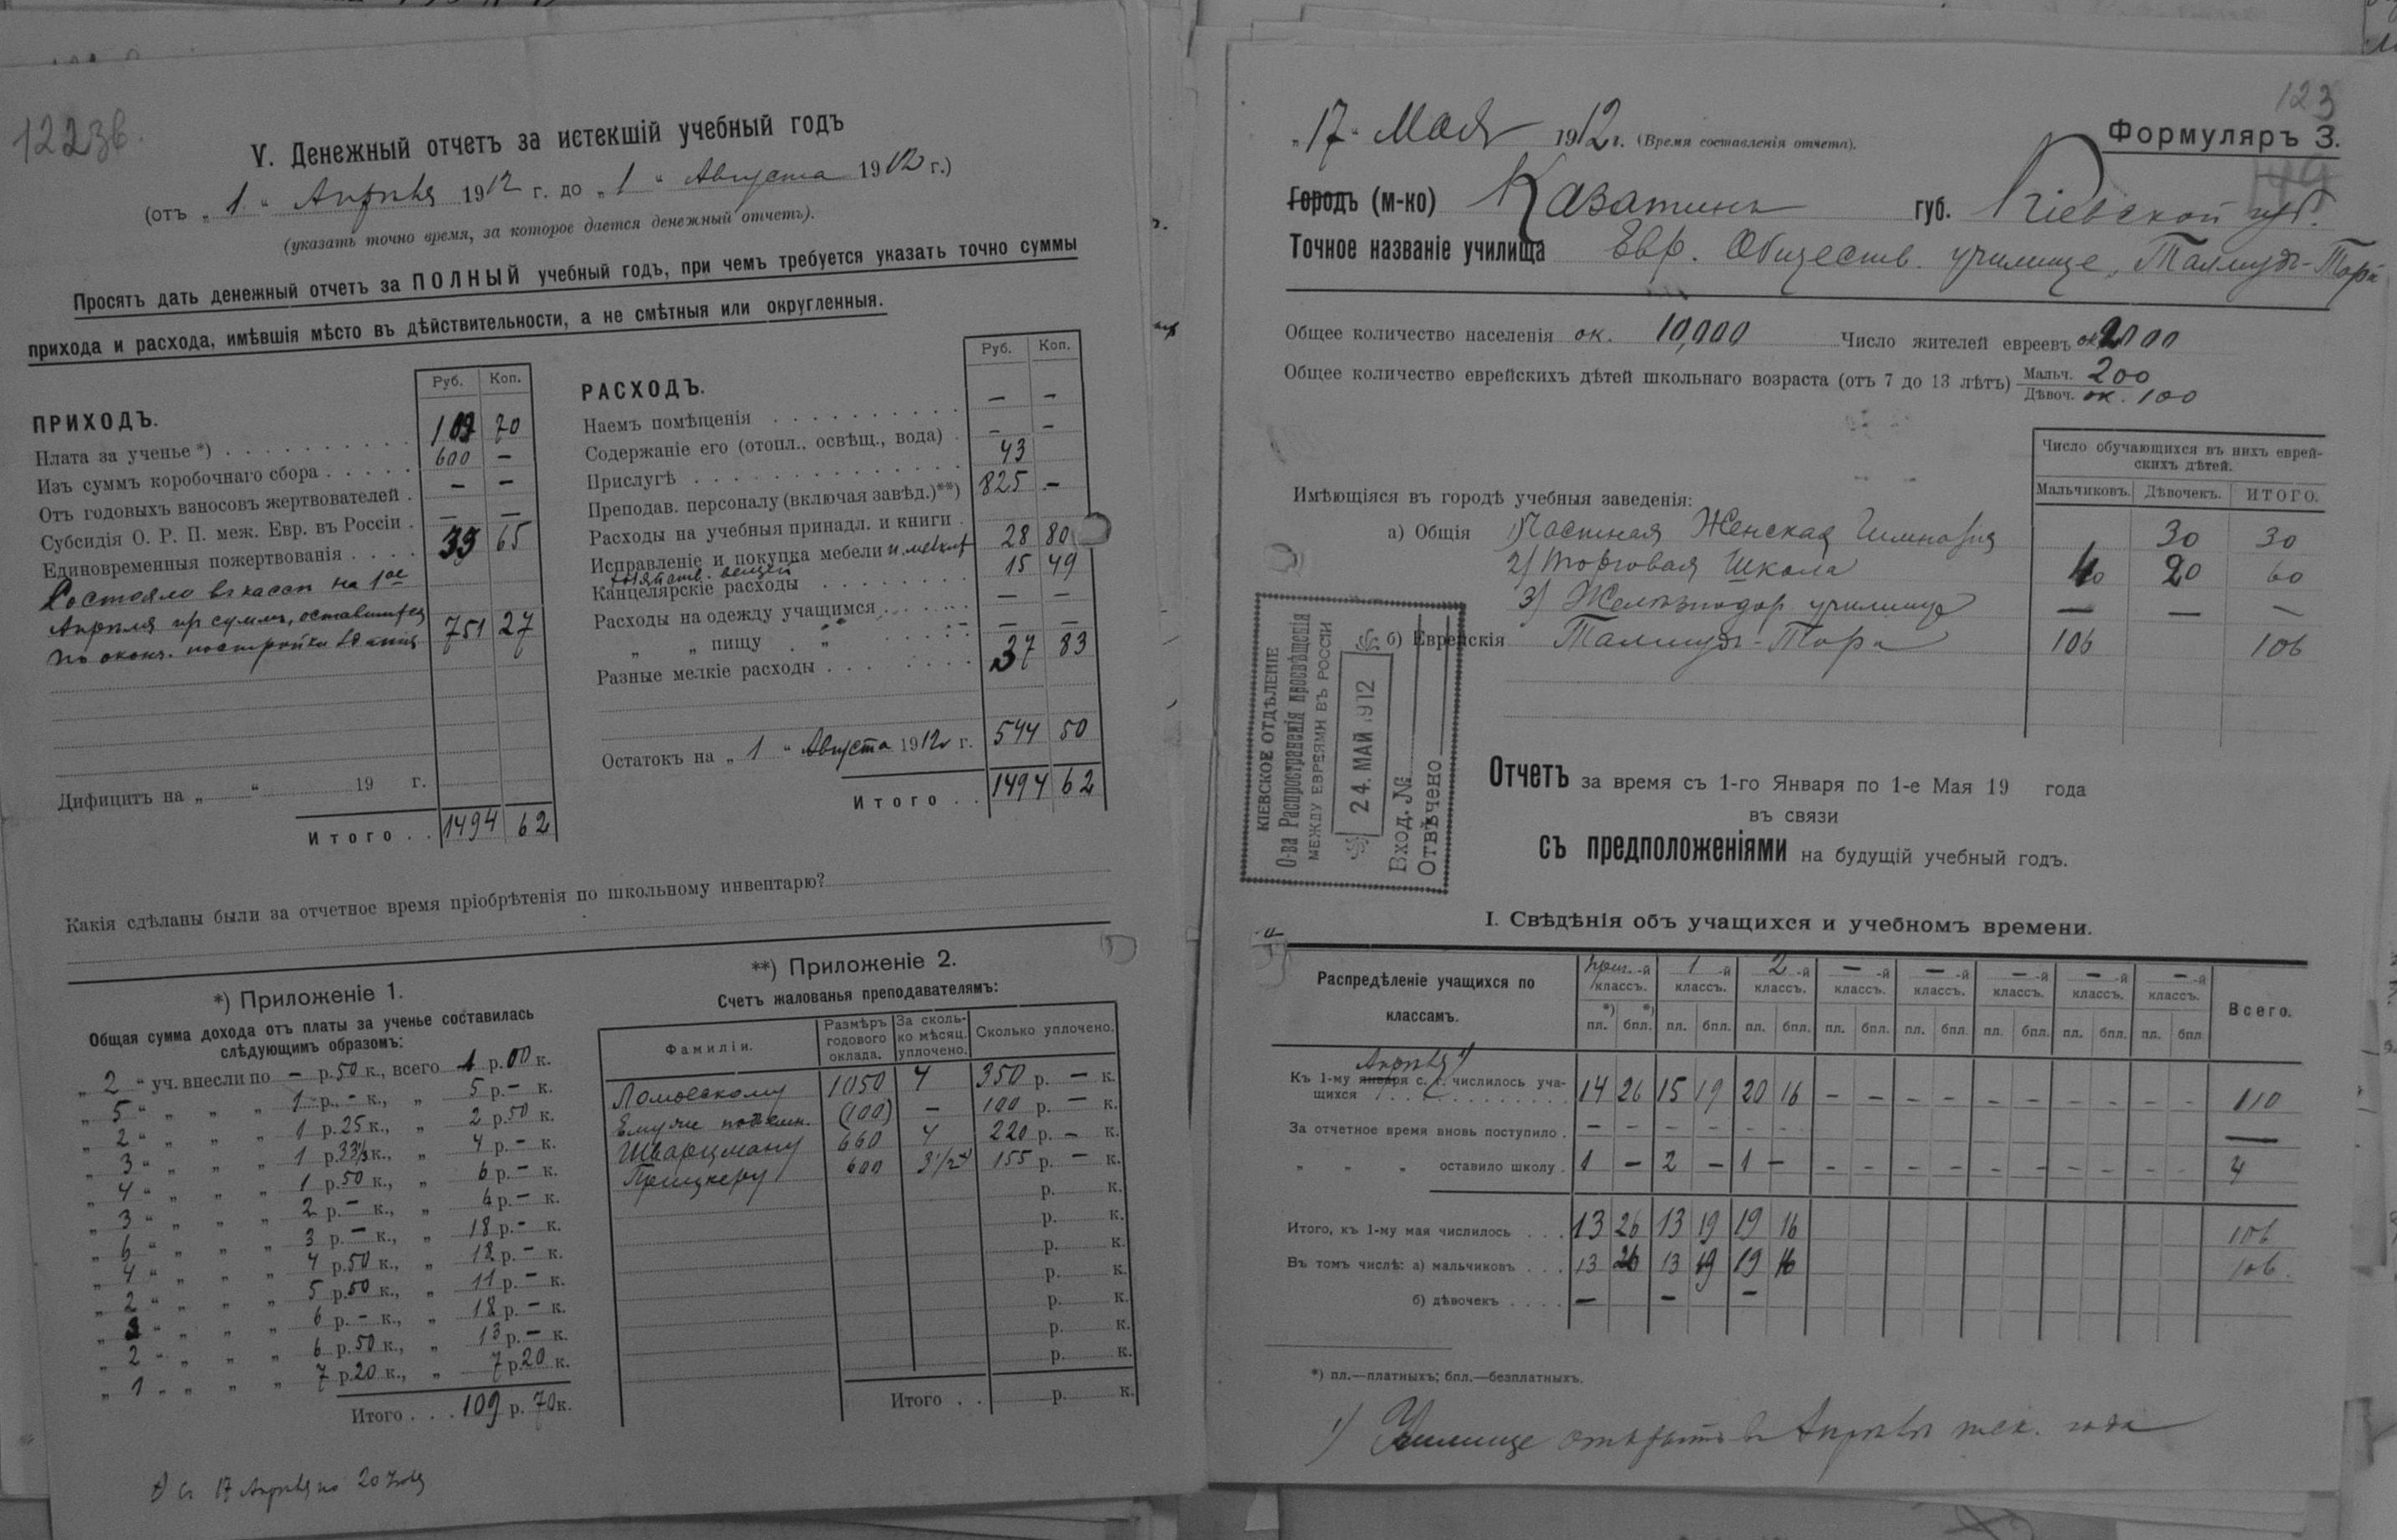 122зв.
V. Денежный отчетъ за истекшій учебный годъ
(отъ „ 1 “ Апрѣля 1912 г. до „ 1 “ Августа 1912 г.)
(указать точно время, за которое дается денежный отчетъ).
Просятъ дать денежный отчетъ за ПОЛНЫЙ учебный годъ, при чемъ требуется указать точно суммы
прихода и расхода, имѣвшія мѣсто въ дѣйствительности, а не смѣтныя или округленныя.
ПРИХОДЪ. Руб. Коп.
Плата за ученье *) 109 70
Изъ суммъ коробочнаго сбора 600 —
Отъ годовыхъ взносовъ жертвователей — —
Субсидія О. Р. П. меж. Евр. въ Россіи — —
Единовременныя пожертвованія 33 65
Состояло въ кассѣ на 1ое
Апрѣля изъ суммъ, оставшихся
по оконч. постройки зданія 751 27
Дифицитъ на „ “ 19 г.
Итого 1494 62
РАСХОДЪ. Руб. Коп.
Наемъ помѣщенія — —
Содержаніе его (отопл., освѣщ., вода) — —
Прислугѣ 43
Преподав. персоналу (включая завѣд.)**) 825 —
Расходы на учебныя принадл. и книги 28 80
Исправленіе и покупка мебели и мелких
хозяйств. вещей 15 49
Канцелярскіе расходы — —
Расходы на одежду учащимся — —
„ „ пищу „
Разные мелкіе расходы 37 83
Остатокъ на „ 1 “ Августа 1912 г. 544 50
Итого 1494 62
Какія сдѣланы были за отчетное время пріобрѣтенія по школьному инвентарю?
*) Приложеніе 1.
Общая сумма дохода отъ платы за ученье составилась
слѣдующимъ образомъ:
„ 2 “ уч. внесли по — р. 50 к., всего 1 р. 00 к.
„ 5 “ „ „ „ 1 р. — к., „ 5 р. — к.
„ 2 “ „ „ „ 1 р. 25 к., „ 2 р. 50 к.
„ 3 “ „ „ „ 1 р. 33⅓ к., „ 4 р. — к.
„ 4 “ „ „ „ 1 р. 50 к., „ 6 р. — к.
„ 3 “ „ „ „ 2 р. — к., „ 6 р. — к.
„ 6 “ „ „ „ 3 р. — к., „ 18 р. — к.
„ 4 “ „ „ „ 4 р. 50 к., „ 18 р. — к.
„ 2 “ „ „ „ 5 р. 50 к., „ 11 р. — к.
„ 3 “ „ „ „ 6 р. — к., „ 18 р. — к.
„ 2 “ „ „ „ 6 р. 50 к., „ 13 р. — к.
„ 1 „ „ „ „ 7 р. 20 к., „ 7 р. 20 к.
Итого . . . 109 р. 70 к.
**) Приложеніе 2.
Счетъ жалованья преподавателямъ:
Фамиліи. Размѣръ годового оклада. За сколько мѣсяц. уплочено. Сколько уплочено.
1050 4 350 р. — к.
Ему же (100) — 100 р. — к.
Шварцману 660 4 220 р. — к.
Прицкеру 600 3½ 155 р. — к.
р. к.
р. к.
р. к.
р. к.
р. к.
р. к.
р. к.
Итого . . р. к.
Съ 17 Апрѣля по 20
123
Формуляръ 3.
„ 17 “ Мая 1912 г. (Время составленія отчета).
Городъ (м-ко) Казатинъ губ. Кіевской губ.
Точное названіе училища Евр. Обществ. училище, Талмудъ-Тора
Общее количество населенія ок. 10,000 Число жителей евреевъ ок. 2000
Общее количество еврейскихъ дѣтей школьнаго возраста (отъ 7 до 13 лѣтъ) Мальч. 200
Дѣвоч. ок. 100
Число обучающихся въ нихъ еврей-
скихъ дѣтей.
Имѣющіяся въ городѣ учебныя заведенія: Мальчиковъ. Дѣвочекъ. ИТОГО.
а) Общія 1) Частная Женская Гимназія 30 30
2) Торговая Школа 40 20 60
3) Желѣзнодор. училище — — —
б) Еврейскія Талмудъ-Тора 106 106
КІЕВСКОЕ ОТДѢЛЕНІЕ
О-ва Распространенія просвѣщенія
МЕЖДУ ЕВРЕЯМИ ВЪ РОССІИ
24. МАЙ 1912
Вход. №
Отвѣчено
Отчетъ за время съ 1-го Января по 1-е Мая 19 года
въ связи
съ предположеніями на будущій учебный годъ.
I. Свѣдѣнія объ учащихся и учебномъ времени.
Распредѣленіе учащихся по классамъ. приг.-й классъ. 1-й классъ. 2-й классъ. —-й классъ. —-й классъ. —-й классъ. —-й классъ. —-й классъ. Всего.
*) пл. *) бпл. пл. бпл. пл. бпл. пл. бпл. пл. бпл. пл. бпл. пл. бпл. пл. бпл.
Апрѣля 1)
Къ 1-му января с. г. числилось уча-
щихся 14 26 15 19 20 16 — — — — — — — — — — 110
За отчетное время вновь поступило . — — — — — — —
„ „ „ оставило школу . 1 — 2 — 1 — — — — — — — — — — — 4
Итого, къ 1-му мая числилось . . . 13 26 13 19 19 16 106
Въ томъ числѣ: а) мальчиковъ . . . 13 26 13 19 19 16 106.
б) дѣвочекъ . . . . — — —
*) пл.—платныхъ; бпл.—безплатныхъ.
1) Училище открыто въ Апрѣлѣ тек. года